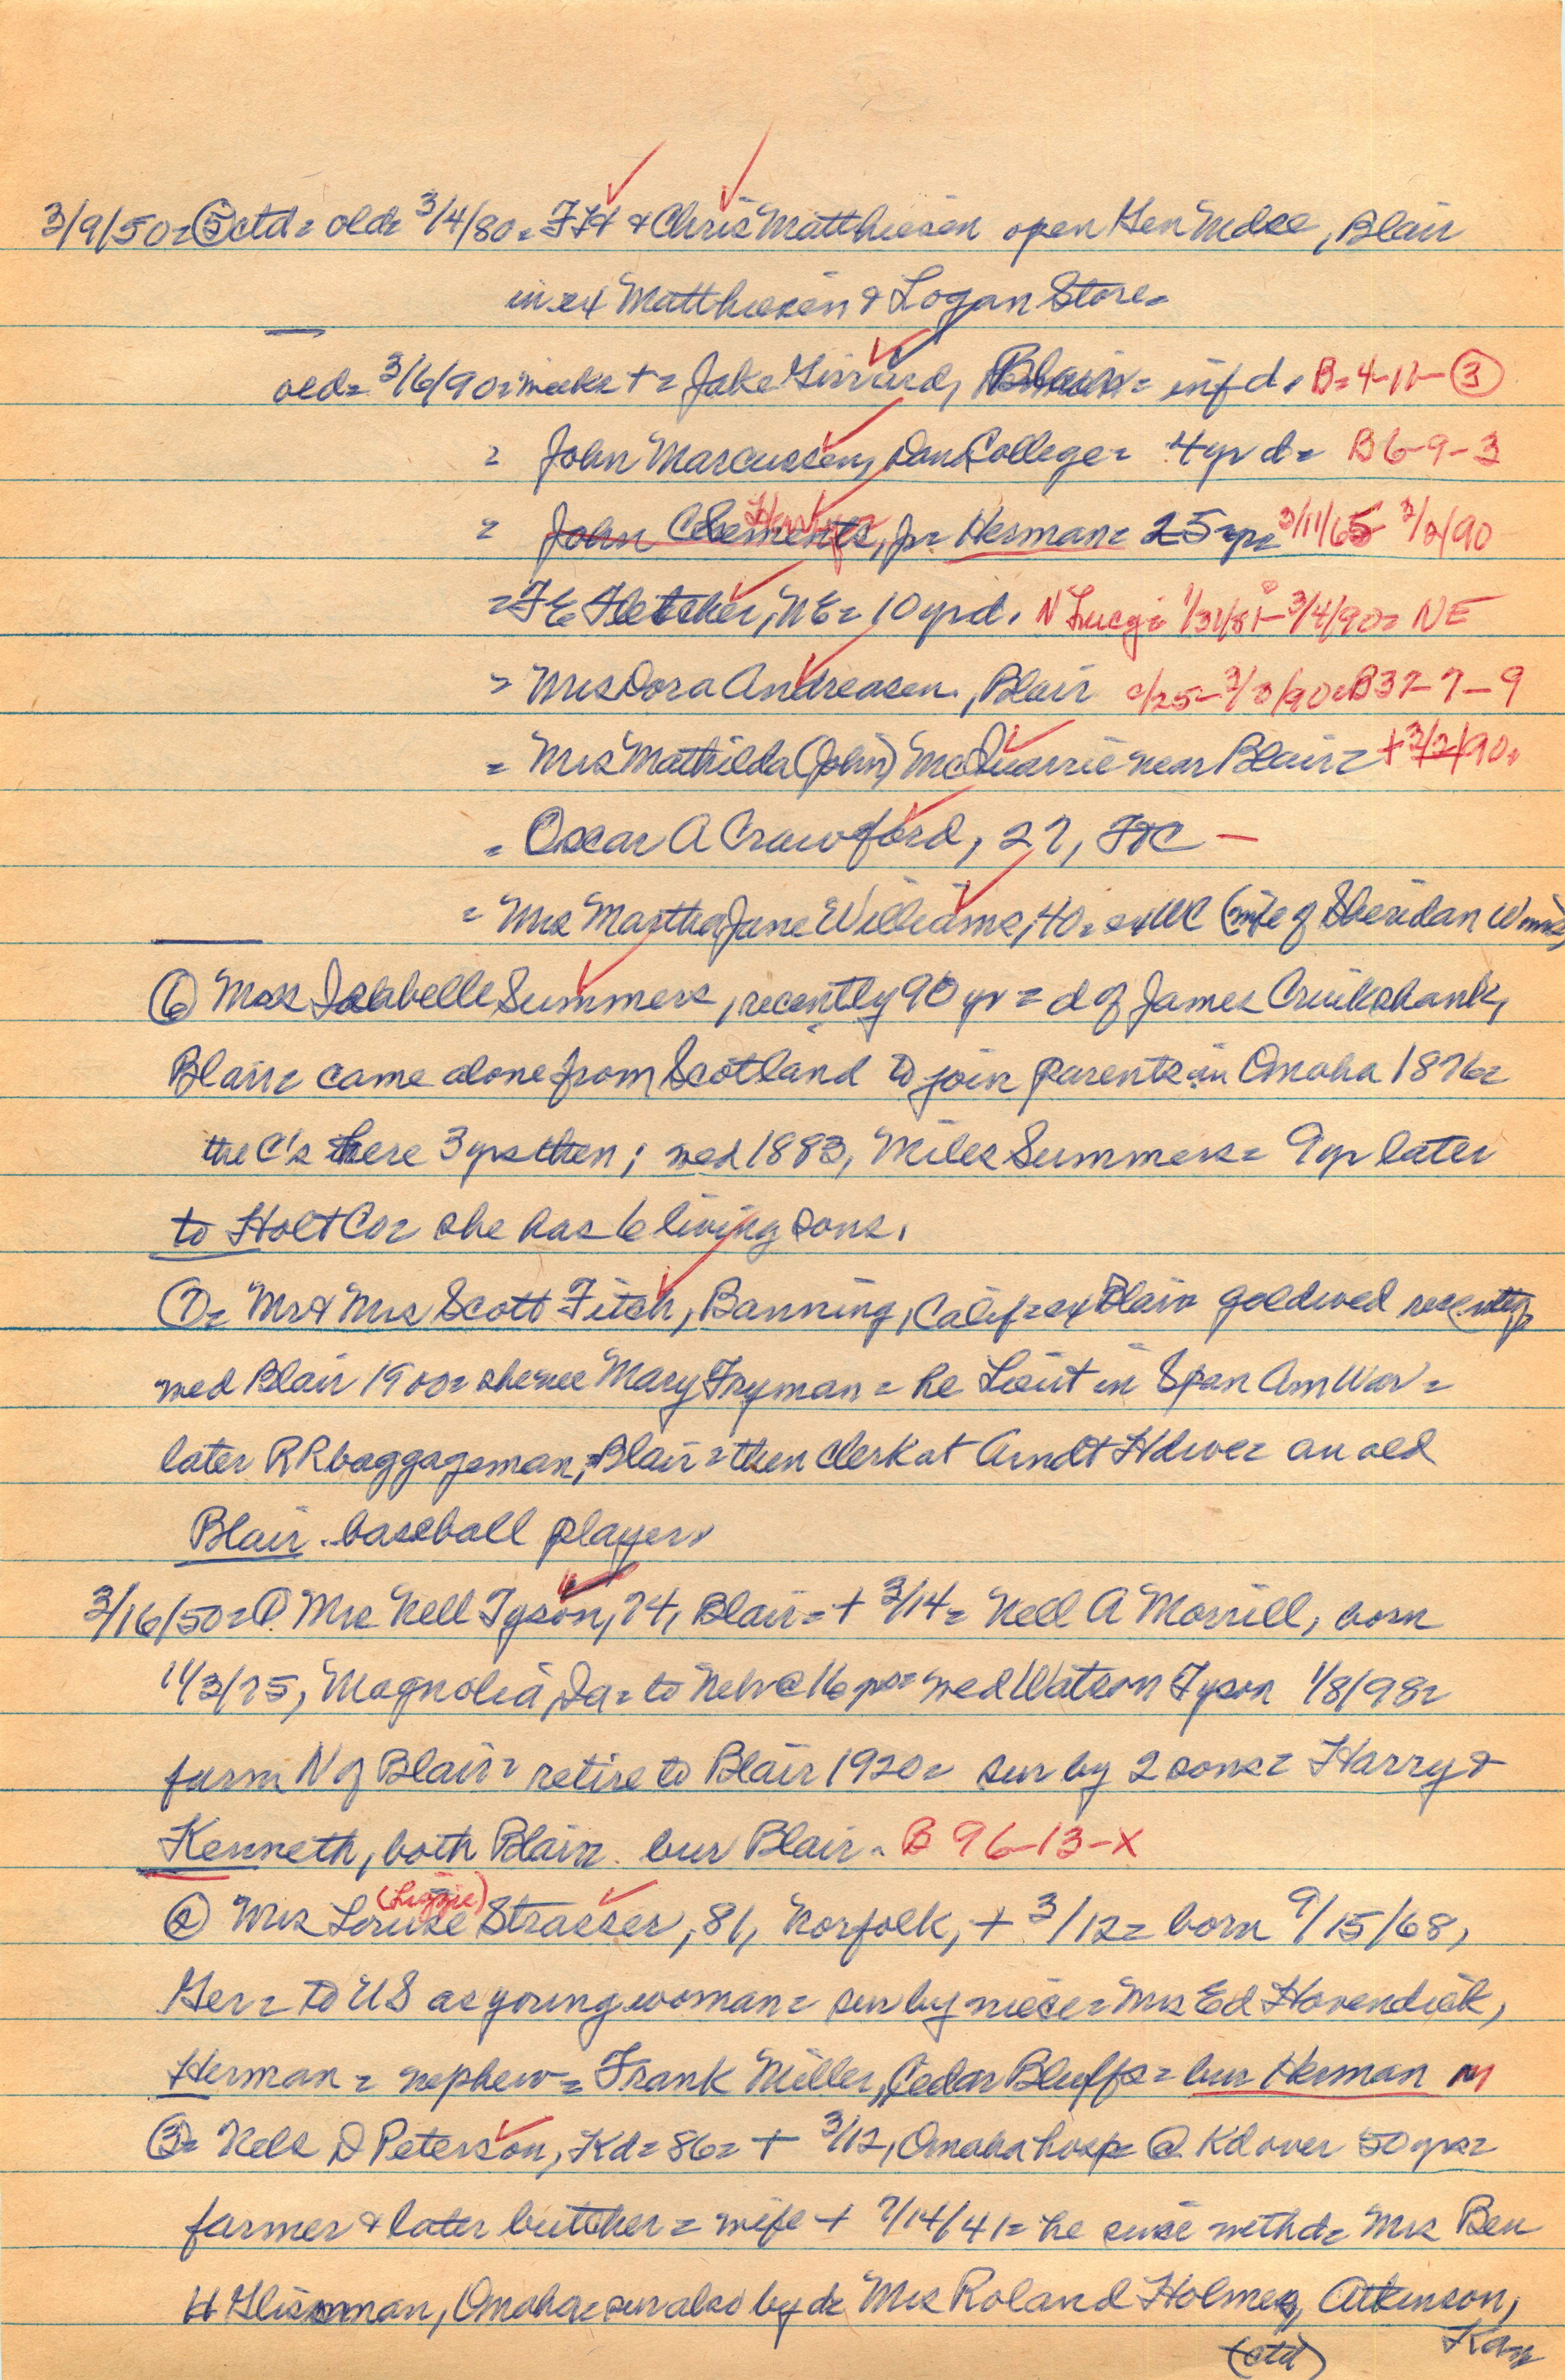 3/9/50= ⑤ ctd= old= 3/4/80= FH & Chris Matthiesen open Gen Mdse, Blair
in ex Matthiesen & Logan Store=
old= 3/6/90= weeks += Jake, Blair= inf d. B=4-11-③
= John Marcussen, Dana College= 4 yr d= B 6-9-3
= John Clements, jr= Herman= 25 yr= 3/11/65 3/2/90
= F E Fletcher, NE= 10 yr d. N Lucy= 1/31/81-3/4/90= NE
= Mrs Dora Andreasen, Blair c/25-3/3/90= B37-7-9
= Mrs Mathilda (John) McQuarrie near Blair= + 3/2/90.
= Oscar A Crawford, 27, FtC —
= Mrs Martha Jane Williams, 40= exWC (wife of Sheridan Wms)
⑥ Mrs Isabelle Summers, recently 90 yr = d of James Cruikshank,
Blair= came alone from Scotland to join parents in Omaha 1876=
the C's here 3 yrs then; wed 1883, Miles Summers= 9 yr later
to Holt Co= she has 6 living sons.
⑦= Mr & Mrs Scott Fitch, Banning, Calif= ex Blair goldwed recently
wed Blair 1900= she nee Mary Fryman = he Lieut in Span Am War=
later RR baggageman, Blair = then clerk at Arndt Hdwe= an old
Blair baseball player.
3/16/50= ① Mrs Nell Tyson, 74, Blair= + 3/14= Nell A Morrill, born
11/3/75, Magnolia, Ia= to Neb @ 16 yr= wed Watson Tyson 1/8/98=
farm N of Blair= retire to Blair 1920= sur by 2 sons= Harry &
Kenneth, both Blair. bur Blair. B 96-13-X
② Mrs Louise (Lizzie) Strasser, 81, Norfolk, + 3/12= born 9/15/68,
Ger= to US as young woman= sur by niece= Mrs Ed Hovendick,
Herman= nephew= Frank Miller, Cedar Bluffs= bur Herman M
③= Nels D Peterson, Kd= 86= + 3/12, Omaha hosp= @ Kd over 50 yrs=
farmer & later butcher = wife + 7/14/41= he since with d= Mrs Ben
H Glissman, Omaha= sur also by d= Mrs Roland Holmes, Atkinson,
(ctd) Kan